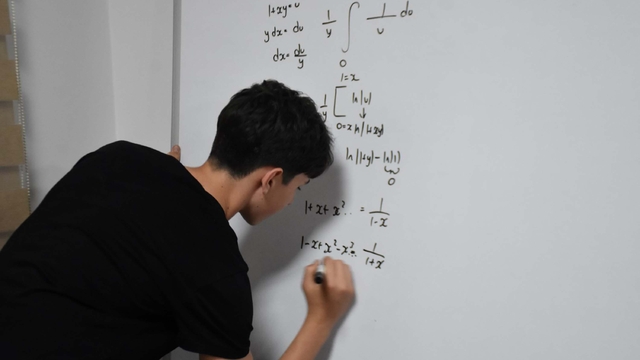 1+xy=u
ydx=du
dx=du/y
1/y ∫ 1/u du
0
1=x
1/y [ ln|u|
↓
0=x ln|1+xy|
ln|1+y|-ln|1|
0
1+x+x².. = 1/1-x
1-x+x²-x³.. 1/1+x